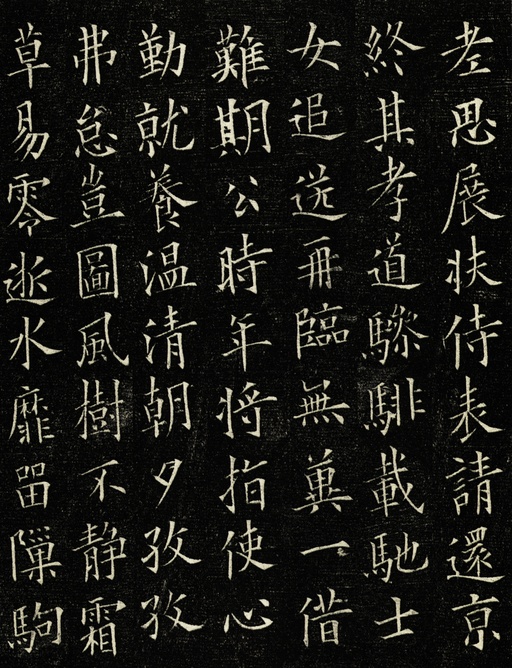 老思展扶侍表請還京
終其孝道驂騑載馳士
女追送再臨無冀一借
難期公時年將指使心
勤就養温清朝夕孜孜
弗怠豈圖風樹不静霜
草易零逝水靡留隟駒